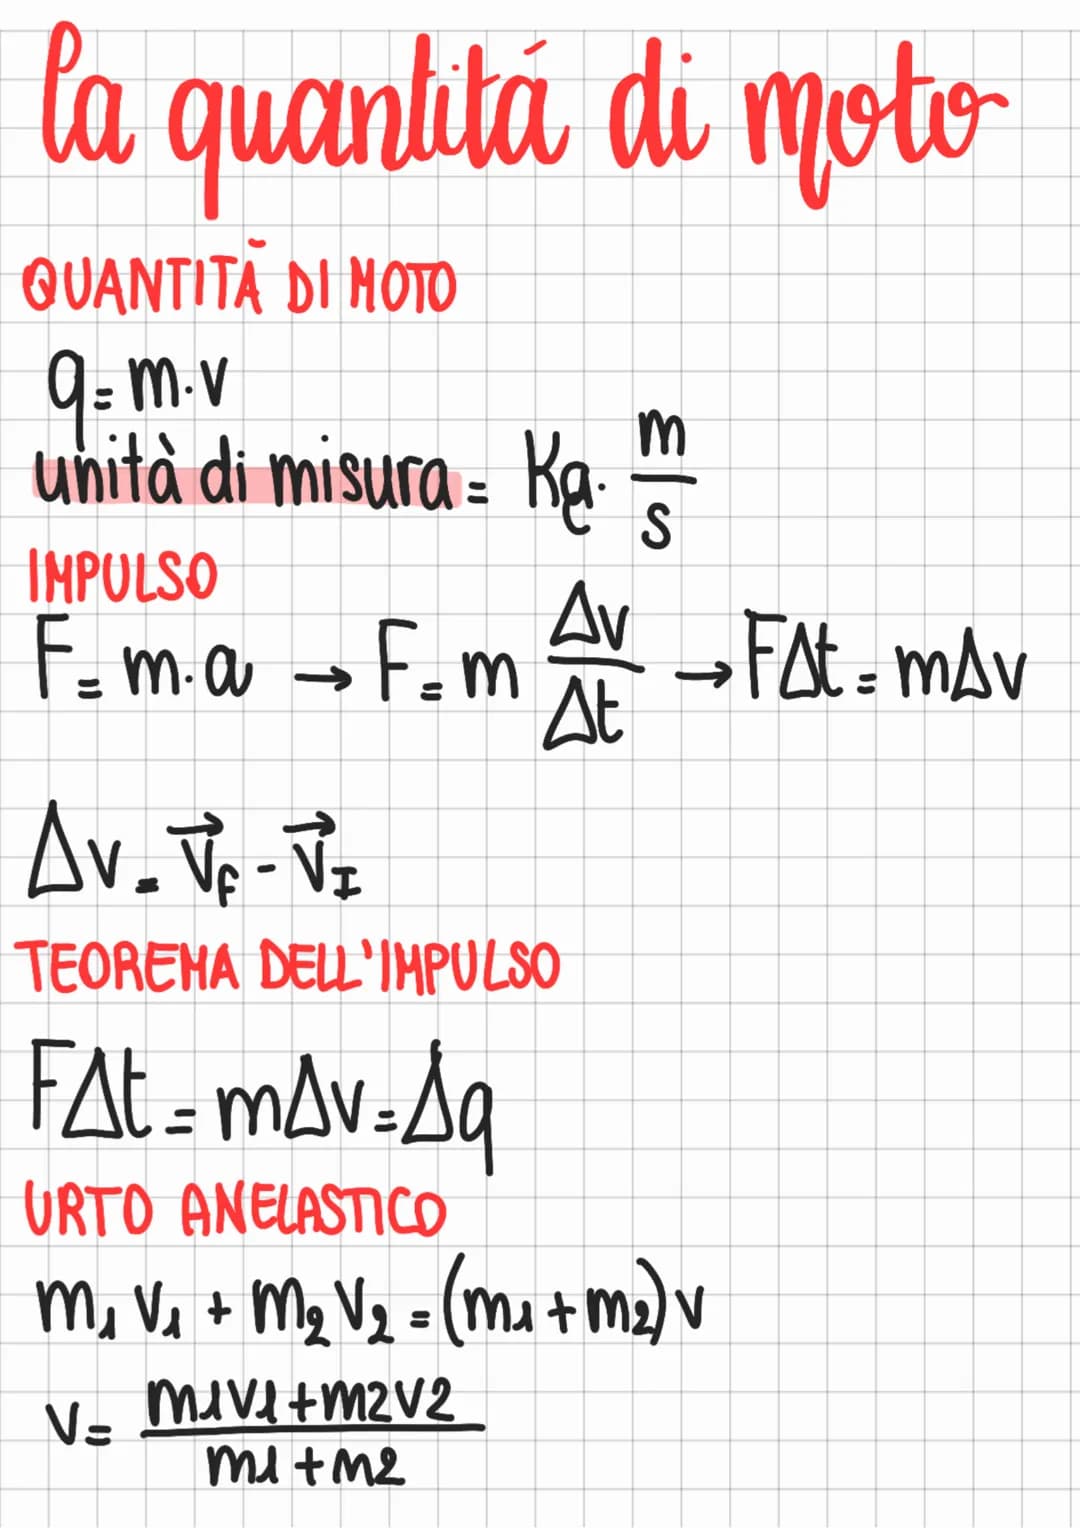 la quantitá di moto
QUANTITÃ DI MOTO
q = m·v
unità di misura = Kg · m/s
IMPULSO
F = m·a → F = m Δv/Δt → FΔt = mΔv
Δv = v⃗F - v⃗I
TEOREMA DELL'IMPULSO
FΔt = mΔv = Δq
URTO ANELASTICO
m₁ v₁ + m₂ v₂ = (m₁ + m₂) v
v = m1v1 + m2v2 / m1 + m2